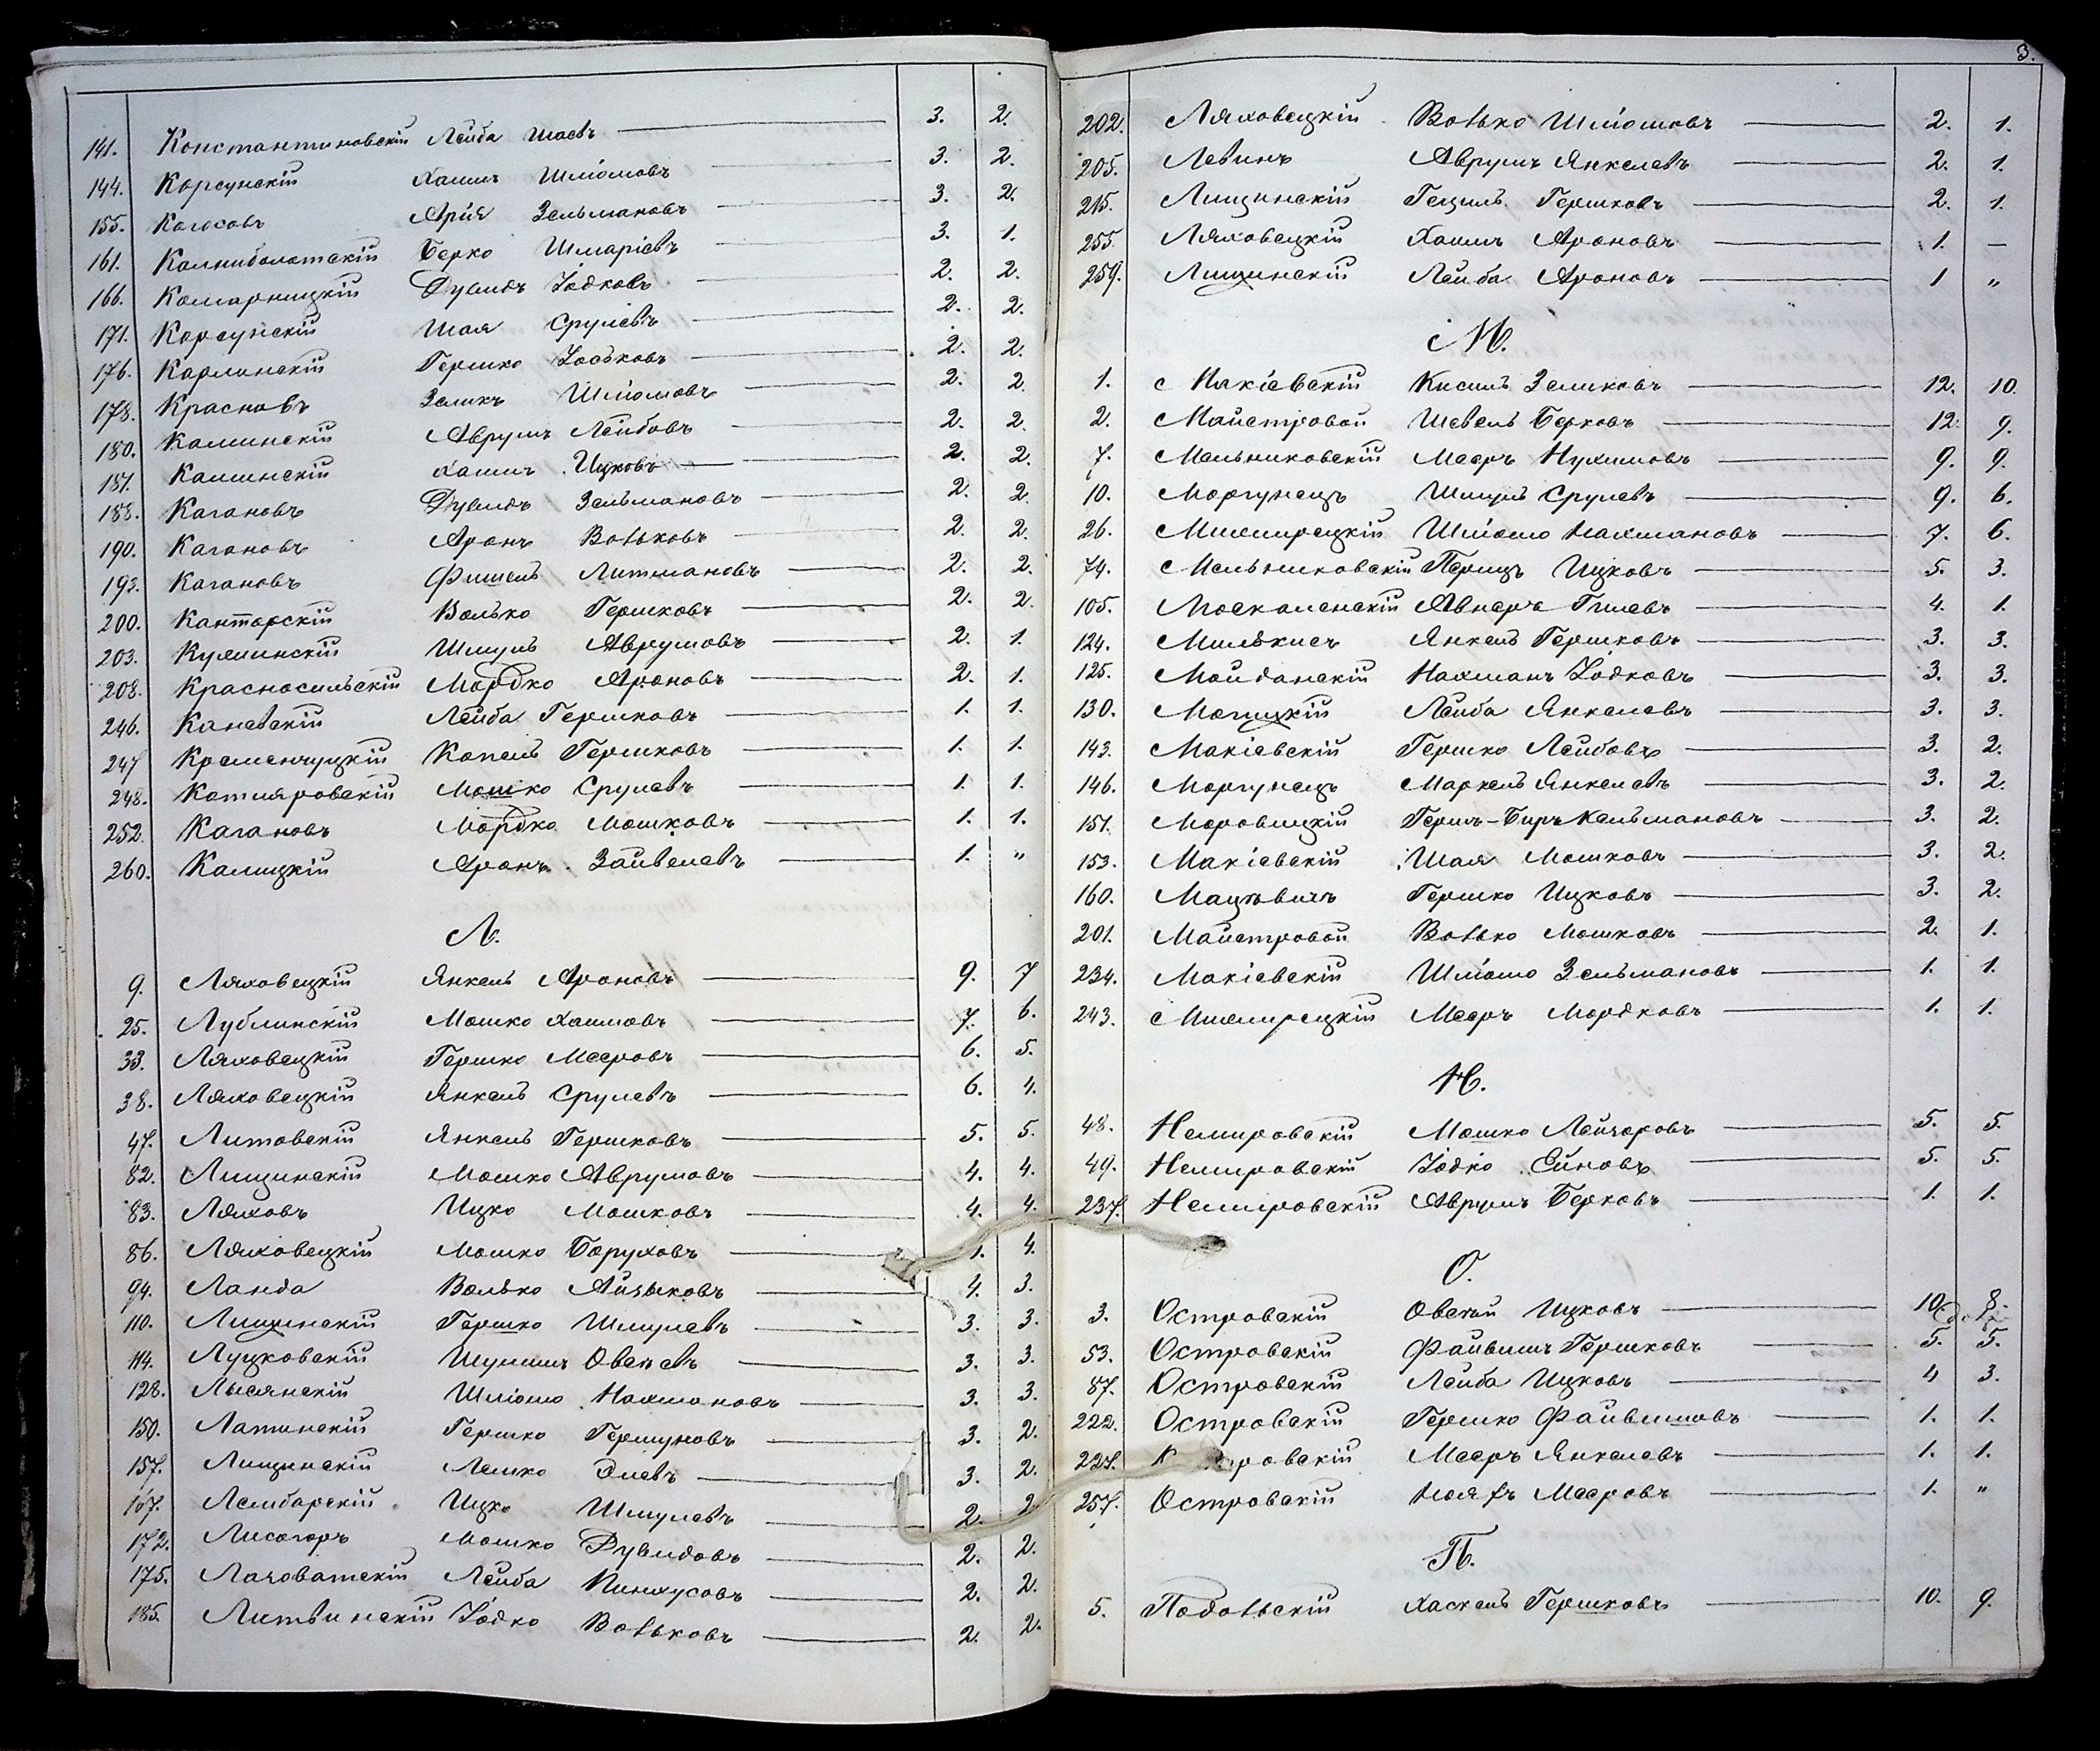 141. Константиновскій Лейба Шаевъ 3. 2.
144. Корсунскій Хаимъ Шліомовъ 3. 2.
155. Колосовъ Арія Зельмановъ 3. 2.
161. Калниболотскій Берко Шмаріевъ 3. 1.
166. Комарницкій Дувидъ Іодковъ 2. 2.
171. Корсунскій Шая Срулевъ 2. 2.
176. Карлинскій Гершко Іоськовъ 2. 2.
178. Красновъ Зеликъ Шліомовъ 2. 2.
180. Каминскій Аврумъ Лейбовъ 2. 2.
181. Каминскій Хаимъ Ицковъ 2. 2.
188. Кагановъ Дувидъ Зельмановъ 2. 2.
190. Кагановъ Аронъ Вольковъ 2. 2.
193. Кагановъ Фишель Литмановъ 2. 2.
200. Канторскій Волько Гершковъ 2. 2.
203. Кулминскій Шмуль Аврумовъ 2. 1.
208. Красносильскій Мордко Ароновъ 2. 1.
246. Каневскій Лейба Гершковъ 1. 1.
247 Кременчуцкій Копель Гершковъ 1. 1.
248. Котляровскій Мошко Срулевъ 1. 1.
252. Кагановъ Мордко Мошковъ 1. 1.
260. Калицкій Аронъ Зайвелевъ 1. "
Л.
9. Ляховецкій Янкель Ароновъ 9. 7
25. Лублинскій Мошко Хаимовъ 7. 6.
33. Ляховецкій Гершко Мееровъ 6. 5.
38. Ляховецкій Янкель Срулевъ 6. 4.
47. Литовскій Янкель Гершковъ 5. 5.
82. Лищинскій Мошко Аврумовъ 4. 4.
83. Ляховъ Ицко Мошковъ 4. 4.
86. Ляховецкій Мошко Боруховъ 4.
94. Ланда Волько Айзыковъ 4. 3.
110. Лищинскій Гершко Шмулевъ 3. 3.
114. Луцковскій Шулимъ Овсеевъ 3. 3.
128. Лысянскій Шліомо Нахмановъ 3. 3.
150. Латинскій Гершко Гершуновъ 3. 2.
157. Лищинскій Лешко Элевъ 3. 2.
167. Лембарскій Ицко Шмулевъ 2. 2
172. Лисогоръ Мошко Дувидовъ 2. 2.
175. Лаговатскій Лейба Пинхусовъ 2. 2.
185. Литвинскій Іодко Вольковъ 2. 2.
3.
202. Ляховецкій Волько Шліомовъ 2. 1.
205. Левинъ Аврумъ Янкелевъ 2. 1.
215. Лищинскій Гецель Гершковъ 2. 1.
255. Ляховецкій Хаимъ Ароновъ 1. —
259. Лищинскій Лейба Ароновъ 1 "
М.
1. Макіевскій Кисиль Зеликовъ 12. 10.
2. Майстровой Шевель Берковъ 12. 9.
7. Мельниковскій Мееръ Нухимовъ 9. 9.
10. Моргунецъ Шмуль Срулевъ 9. 6.
26. Мижирецкій Шліомо Нахмановъ 7. 6.
74. Мельниковскій Перицъ Ицковъ 5. 3.
105. Москаленскій Авнеръ Гилевъ 4. 1.
124. Милькисъ Янкель Гершковъ 3. 3.
125. Майданскій Нахманъ Іодковъ 3. 3.
130. Могицкій Лейба Янкелевъ 3. 3.
143. Макіевскій Гершко Лейбовъ 3. 2.
146. Моргунецъ Маркель Янкелевъ 3. 2.
151. Моровицкій Гершъ-Беръ Кельмановъ 3. 2.
153. Макіевскій Шая Мошковъ 3. 2.
160. Мацѣвичъ Гершко Ицковъ 3. 2.
201. Майстровой Волько Мошковъ 2. 1.
234. Макіевскій Шліомо Зельмановъ 1. 1.
243. Мижирецкій Мееръ Мордковъ 1. 1.
Н.
48. Немировскій Мошко Лейзоровъ 5. 5.
49. Немировскій Іодко Ейновъ 5. 5.
237. Немировскій Аврумъ Берковъ 1. 1.
О.
3. Островскій Овсѣй Ицковъ 10. 8.
53. Островскій Файвишъ Гершковъ 5. 5.
87. Островскій Лейба Ицковъ 4 3.
222. Островскій Гершко Файвишовъ 1. 1.
227. Островскій Мееръ Янкелевъ 1. 1.
257. Островскій Мееровъ 1. "
П.
5. Подольскій Хаскель Гершковъ 10. 9.